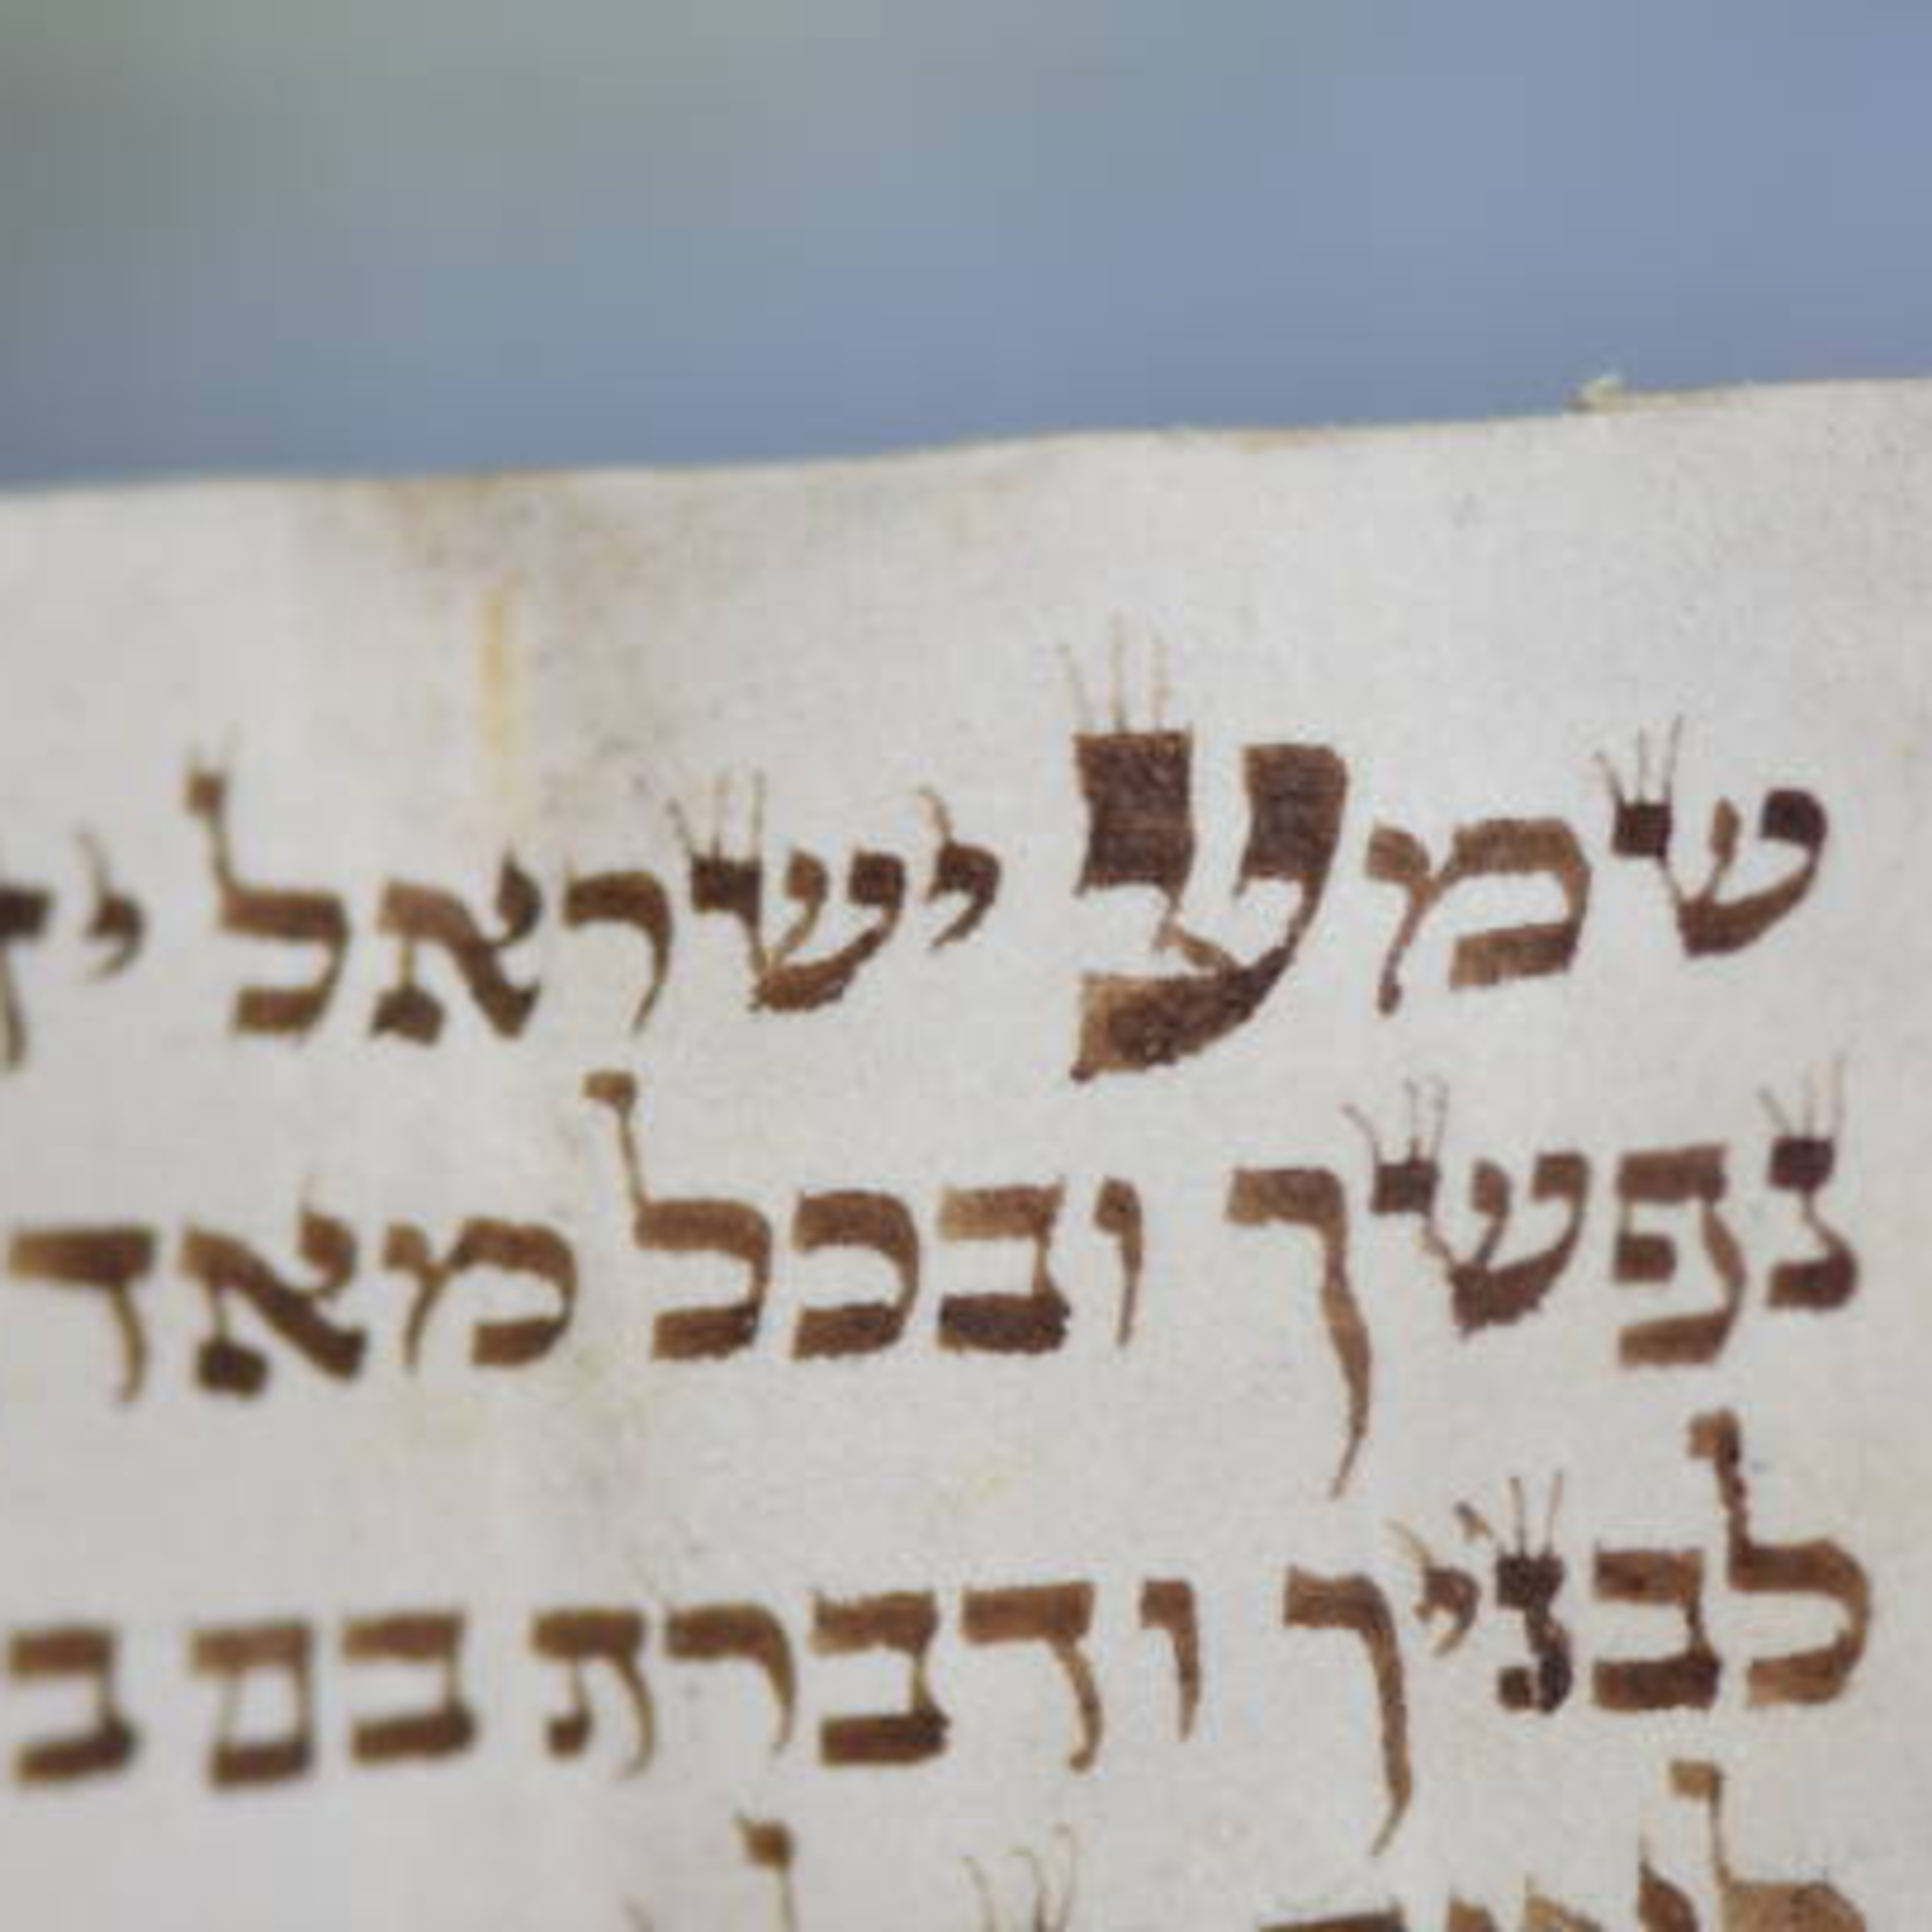 שמע ישראל
נפשך ובכל מאד
לבניך ודברת בם ב